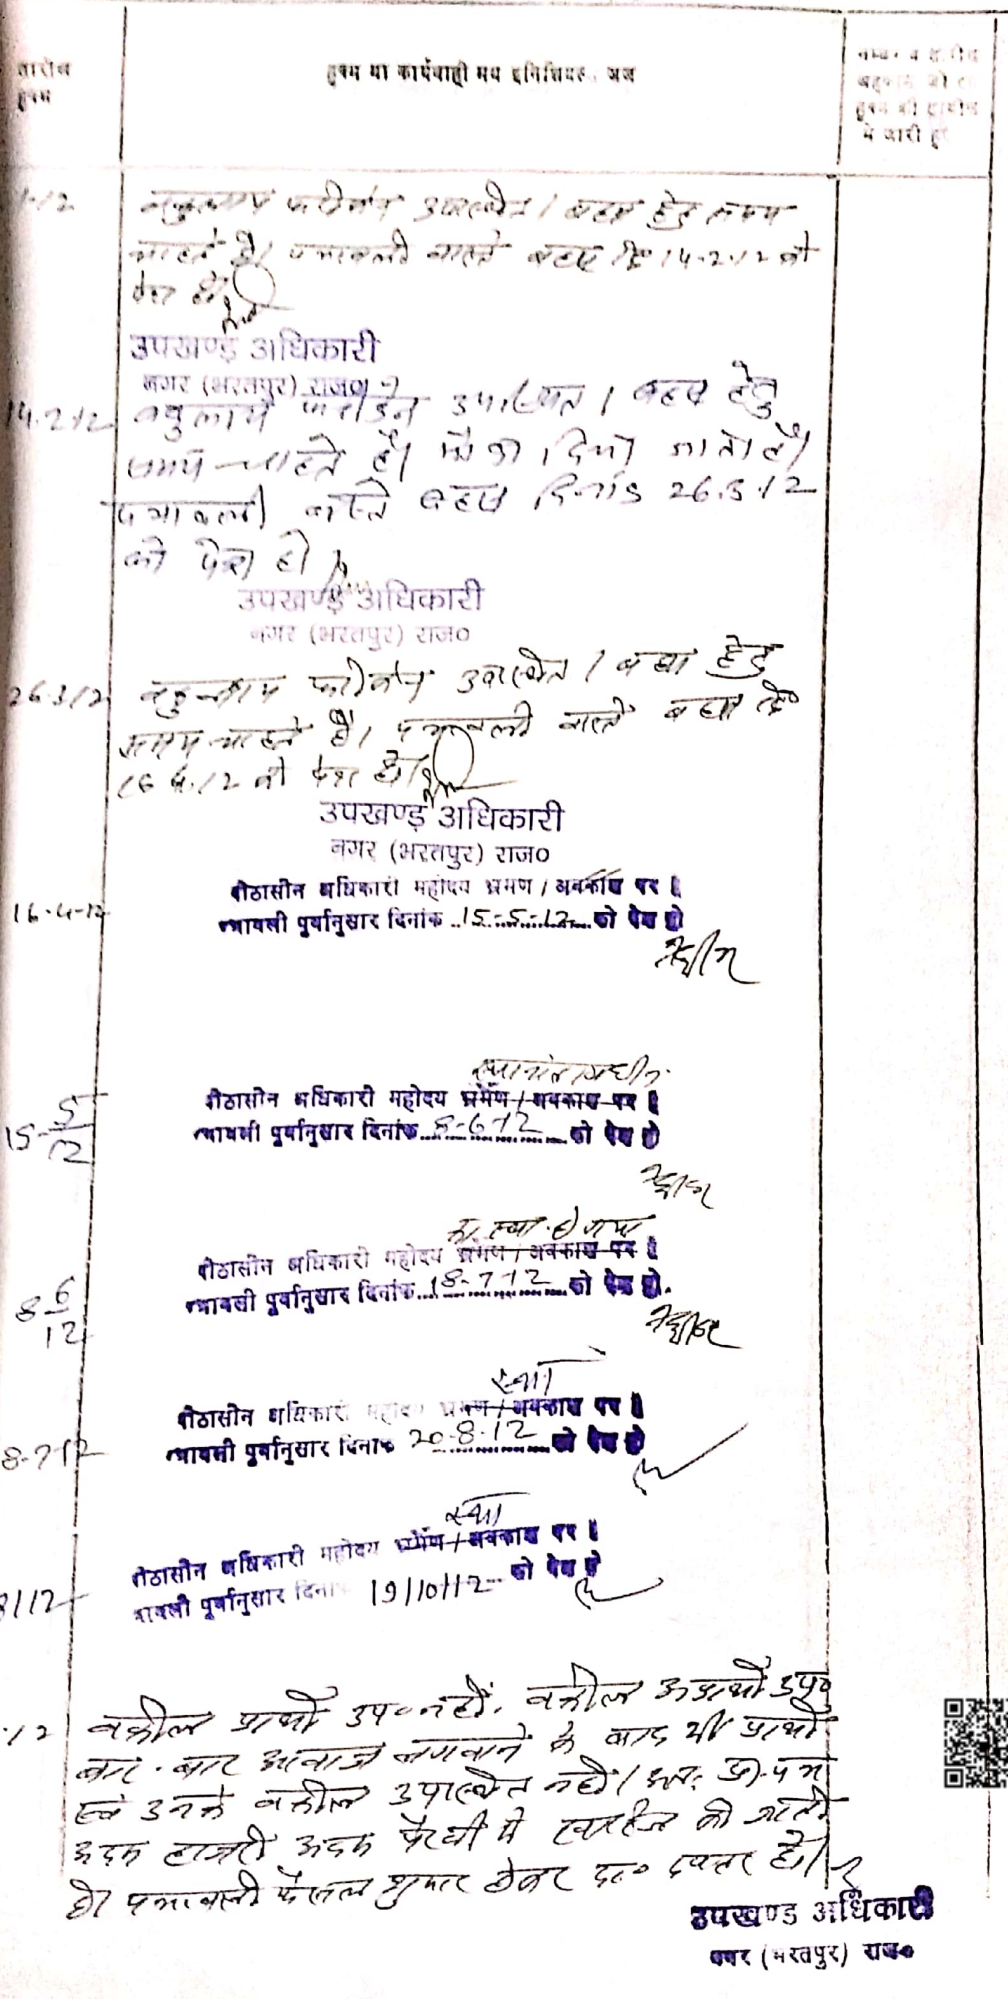 तारीख
हुक्म
हुक्म या कार्यवाही मय इनिशियल्स जज
नम्बर व तारीख
अहकाम जो इस
हुक्म की तामील
में जारी हुए
1-12
वकुलाय फरीकेन उपस्थित। बहस हेतु समय
चाहते है। पत्रावली वास्ते बहस दि० 14-2-12 को
पेश हो।
उपखण्ड अधिकारी
नगर (भरतपुर) राज०
14.2.12
वकुलाय फरीकेन उपस्थित। बहस हेतु
समय चाहते है। मौका दिया जाता है।
पत्रावली वास्ते बहस दिनांक 26.3.12
को पेश हो।
उपखण्ड अधिकारी
नगर (भरतपुर) राज०
26.3.12
वकुलाय फरीकेन उपस्थित। बहस हेतु
समय चाहते है। पत्रावली वास्ते बहस दि०
16.4.12 को पेश हो।
उपखण्ड अधिकारी
नगर (भरतपुर) राज०
16-4-12
पीठासीन अधिकारी महोदय भ्रमण / अवकाश पर है
पत्रावली पूर्वानुसार दिनांक 15-5-12 को पेश हो
15-5/12
पीठासीन अधिकारी महोदय भ्रमण / अवकाश पर है
पत्रावली पूर्वानुसार दिनांक 8-6-12 को पेश हो
8 6/12
का. स्था. हो गया
पीठासीन अधिकारी महोदय भ्रमण / अवकाश पर है
पत्रावली पूर्वानुसार दिनांक 18-7-12 को पेश हो.
8-7-12
स्था
पीठासीन अधिकारी महोदय भ्रमण / अवकाश पर है
पत्रावली पूर्वानुसार दिनांक 20-8-12 को पेश हो
8/12
स्था
पीठासीन अधिकारी महोदय भ्रमण / अवकाश पर है
पत्रावली पूर्वानुसार दिनांक 19/10/12 को पेश हो
-12
वकील प्रार्थी उप० नहीं. वकील अप्रार्थी उप०
बार-बार आवाज लगवाने के बाद भी प्रार्थी
एवं उनके वकील उपस्थित नहीं। अतः प्रा.पत्र
अदम हाजरी अदम पैरवी में खारिज की जाती
है। पत्रावली फैसल शुमार होकर दा० दफ्तर हो।
उपखण्ड अधिकारी
नगर (भरतपुर) राज०